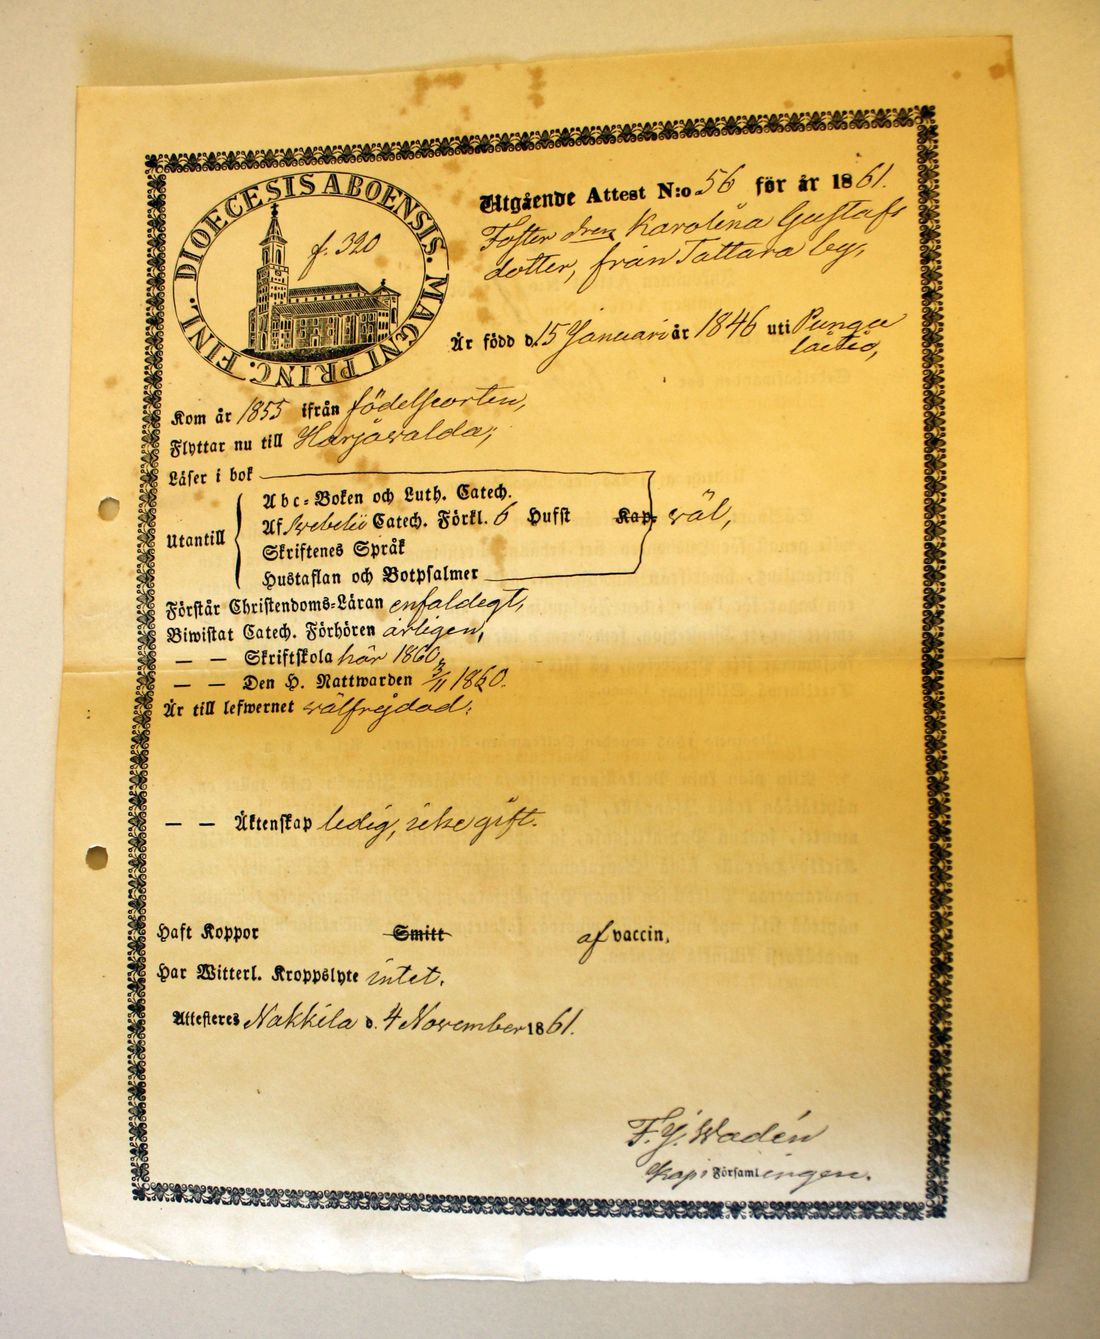 DIOECESIS ABOENSIS. MAGNI PRINC. FINL.
f. 320
Utgående Attest N:o 56 för år 1861.
Foster dren Karolina Gustafs
dotter, från Tattara by,
Är född d. 15 Januari år 1846 uti Punga
laitio,
Kom år 1855 ifrån födelseorten,
Flyttar nu till Harjawalda,
Läser i bok
Abc-Boken och Luth. Catech.
Utantill Af Svebelii Catech. Förkl. 6 Hufst Kap. wäl,
Skriftenes Språk
Hustaflan och Botpsalmer
Förstår Christendoms-Läran enfaldigt,
Biwistat Catech. Förhören årligen,
— — Skriftskola här 1860,
— — Den H. Nattwarden 3/11 1860.
Är till lefwernet wälfrejdad:
— — Äktenskap ledig, icke gift.
Haft Koppor Smitt af vaccin,
Har Witterl. Kroppslyte intet.
Attesteres Nakkila d. 4 November 1861.
F. J. Wadén
Kap. Församlingen.